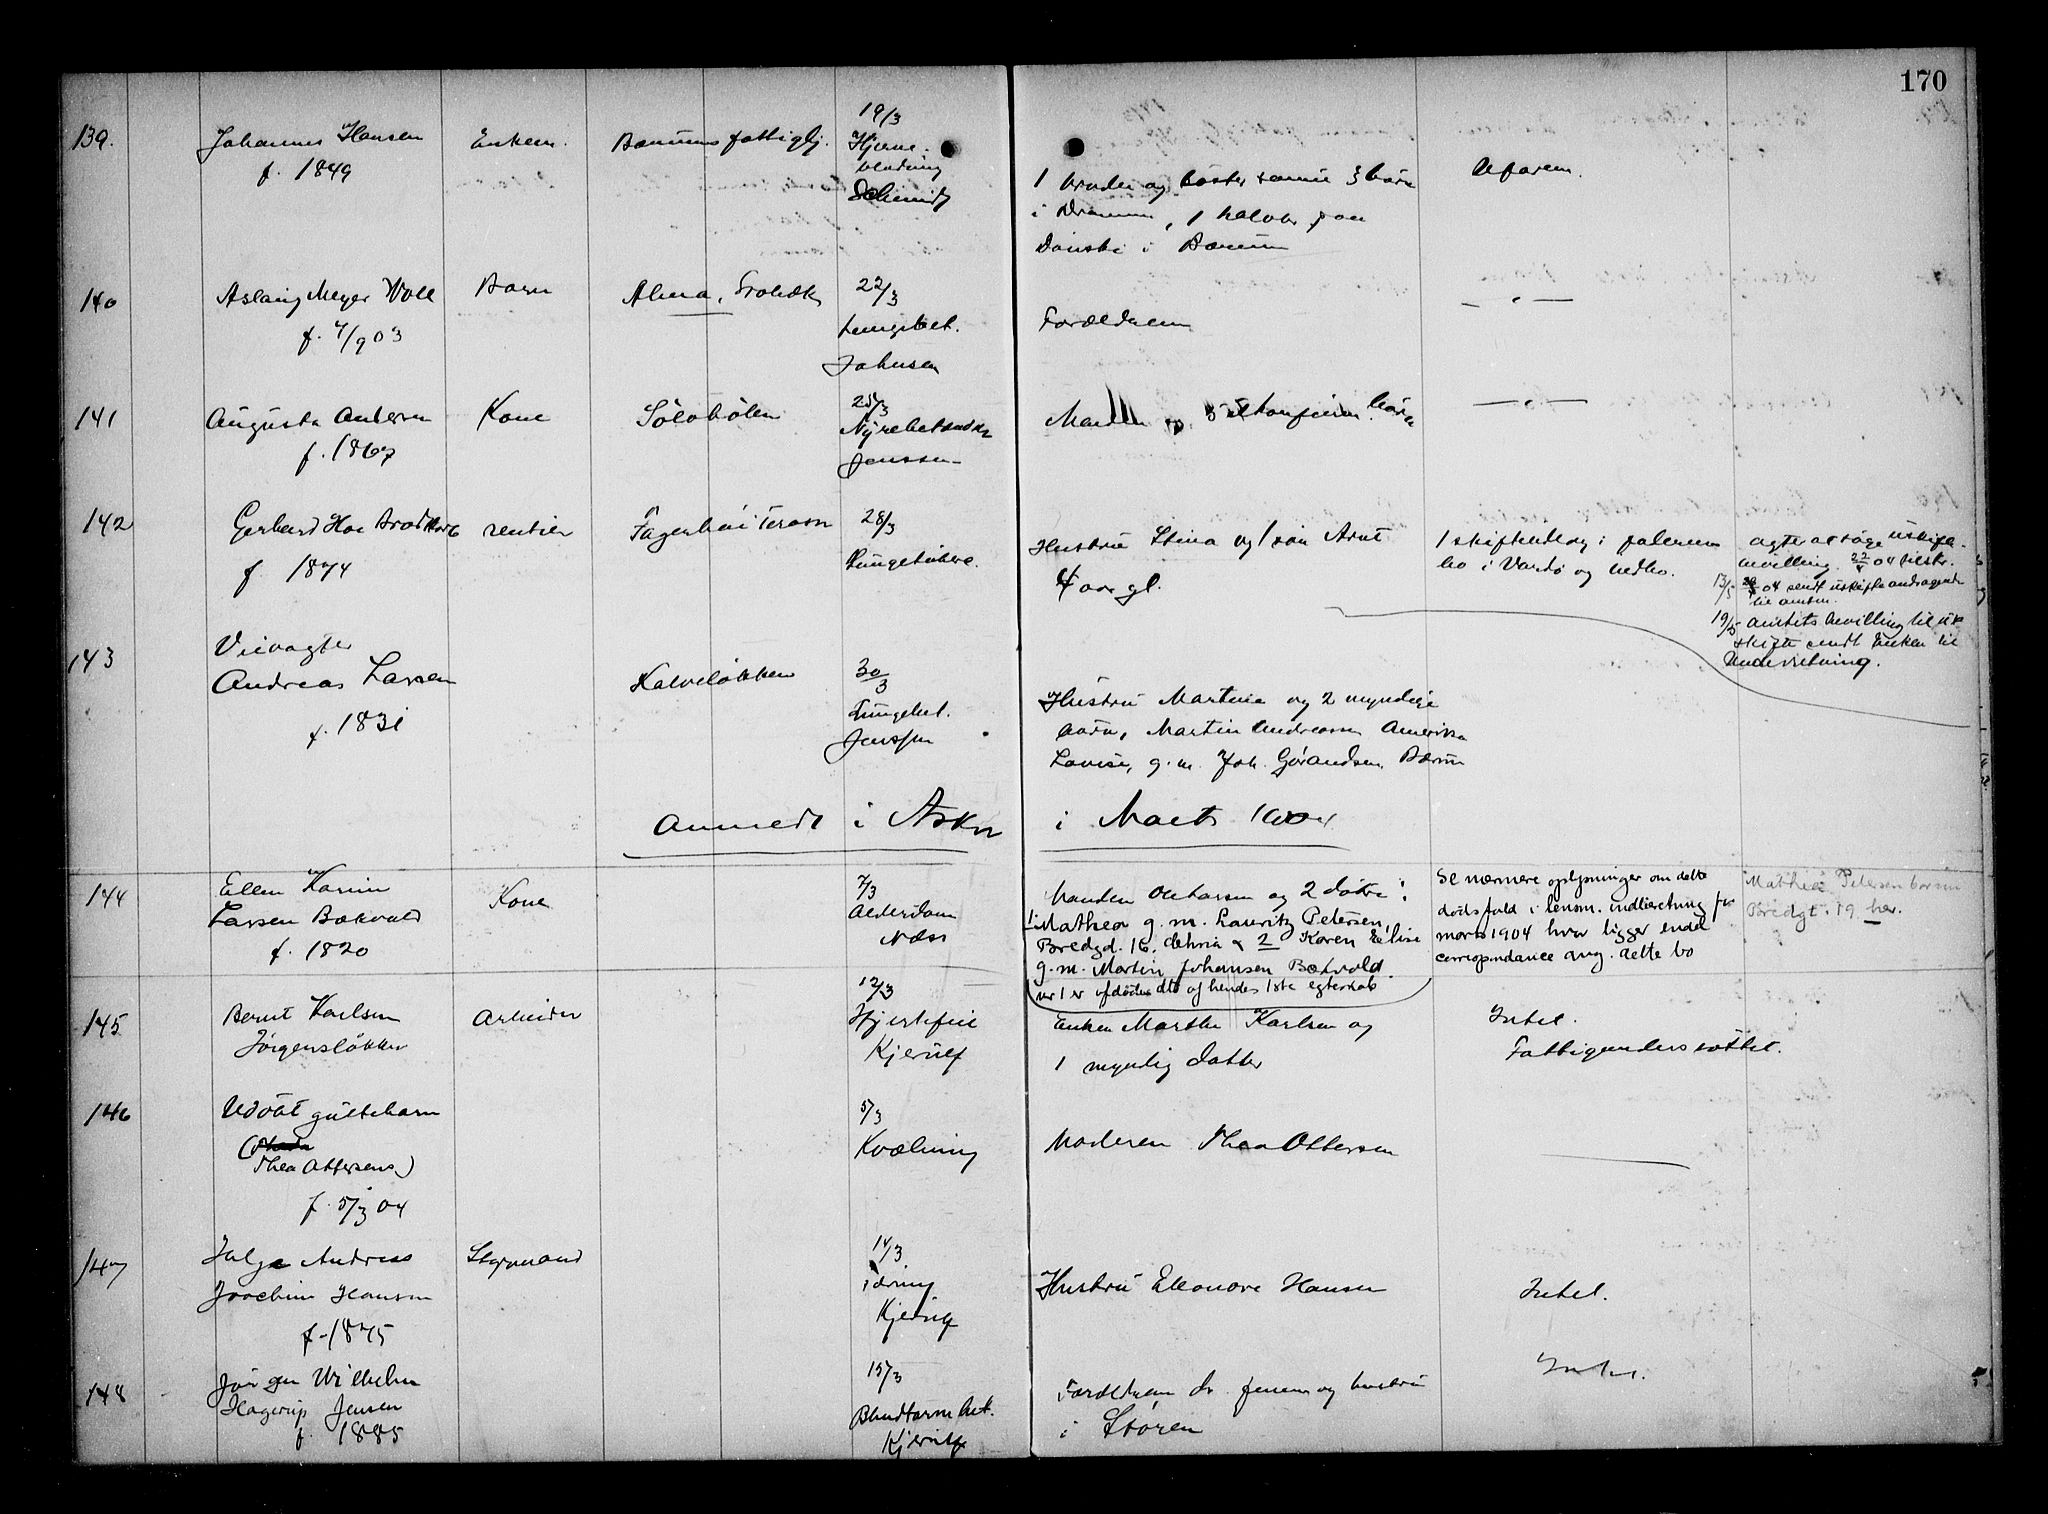 170
139.
Johannes Hansen
f. 1849
Enkem.
Bærums fattiglj.
19/3
Hjerne-
blødning
Schmidt
1 broder og søster samt 3 børn
i Drammen, 1 halvbr. paa
Dønski i Bærum
Uformu.
140
Aslaug Meyer Woll
f. 7/9 03
Barn
Alma,
22/3
Lungebet.
Johnsen
Forældrene
— " —
141
Augusta Andersen
f. 1867
Kone
Sølvhølen
25/3
Nyrebetændelse
Jenssen
Manden og 5 ukonfirm. børn
— " —
142
Gerhard Hoe Brodtkorb
f. 1874
rentier
Fagerhøi Terasse
28/3
Lungetuberk.
Hustru Stina og 1 søn Arnt
4 aar gl.
1 skifteudlæg i faderens
bo i Vardø og indbo.
agter at søge uskifte-
bevilling. 22/4 04 tilskr.
13/5 04 sendt uskifteandragende
til amtm.
19/5 amtets bevilling til usk
skifte sendt Enken til
Underretning.
143
Veivogter
Andreas Larsen
f. 1831
Kalveløkken
30/3
Lungebet.
Jenssen
Hustru Martine og 2 myndige
børn, Martin Andreassen Amerika
Lovise, g. m. Joh. Gørandsen, Bærum
Anmeldt i Asker i Marts 1904
144
Ellen Karine
Larsen Bækvald
f. 1820
Kone
7/3
Alderdom
Næss
Manden Ole Larsen og 2 døtre:
1 Mathea g. m. Lauritz Petersen,
Bredgd. 16, Kr.nia & 2 Karen Elise
g. m. Martin Johansen Bækvold.
nr 1 er afdødes dtr af hendes 1ste egteskab
Se nærmere oplysninger om dette
dødsfald i lensm. indberetning for
marts 1904 hvor ligger endel
correspondance ang. dette bo
Mathea Petersen bor nu
Bredgt. 19 her.
145
Bernt Karlsen
Jørgensløkken
Arbeider
12/3
Hjertefeil
Kjerulf
Enken Marthe Karlsen og
1 myndig datter
Intet.
Fattigunderstøttet.
146
Udøbt guttebarn
(
Thea Ottersens)
f. 5/3 04
5/3
Kvælning
Moderen Thea Ottersen
147
Helge Andreas
Joachim Hansen
f. 1875
Styrmand
14/3
Tæring
Kjerulf
Hustru Eleonore Hansen
Intet.
148
Jørgen Wilhelm
Hagerup Jensen
f. 1885
15/3
Blindtarmbet.
Kjerulf
Forældrene dr. Jensen og hustru
i Støren
Intet.